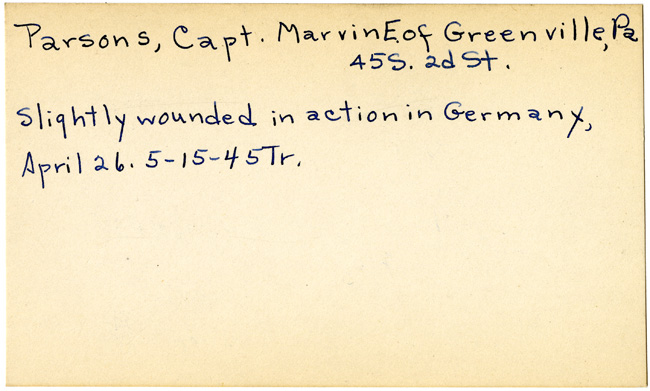 Parsons, Capt. Marvin E. of Greenville, Pa
45 S. 2d St.
Slightly wounded in action in Germany,
April 26. 5-15-45 Tr.